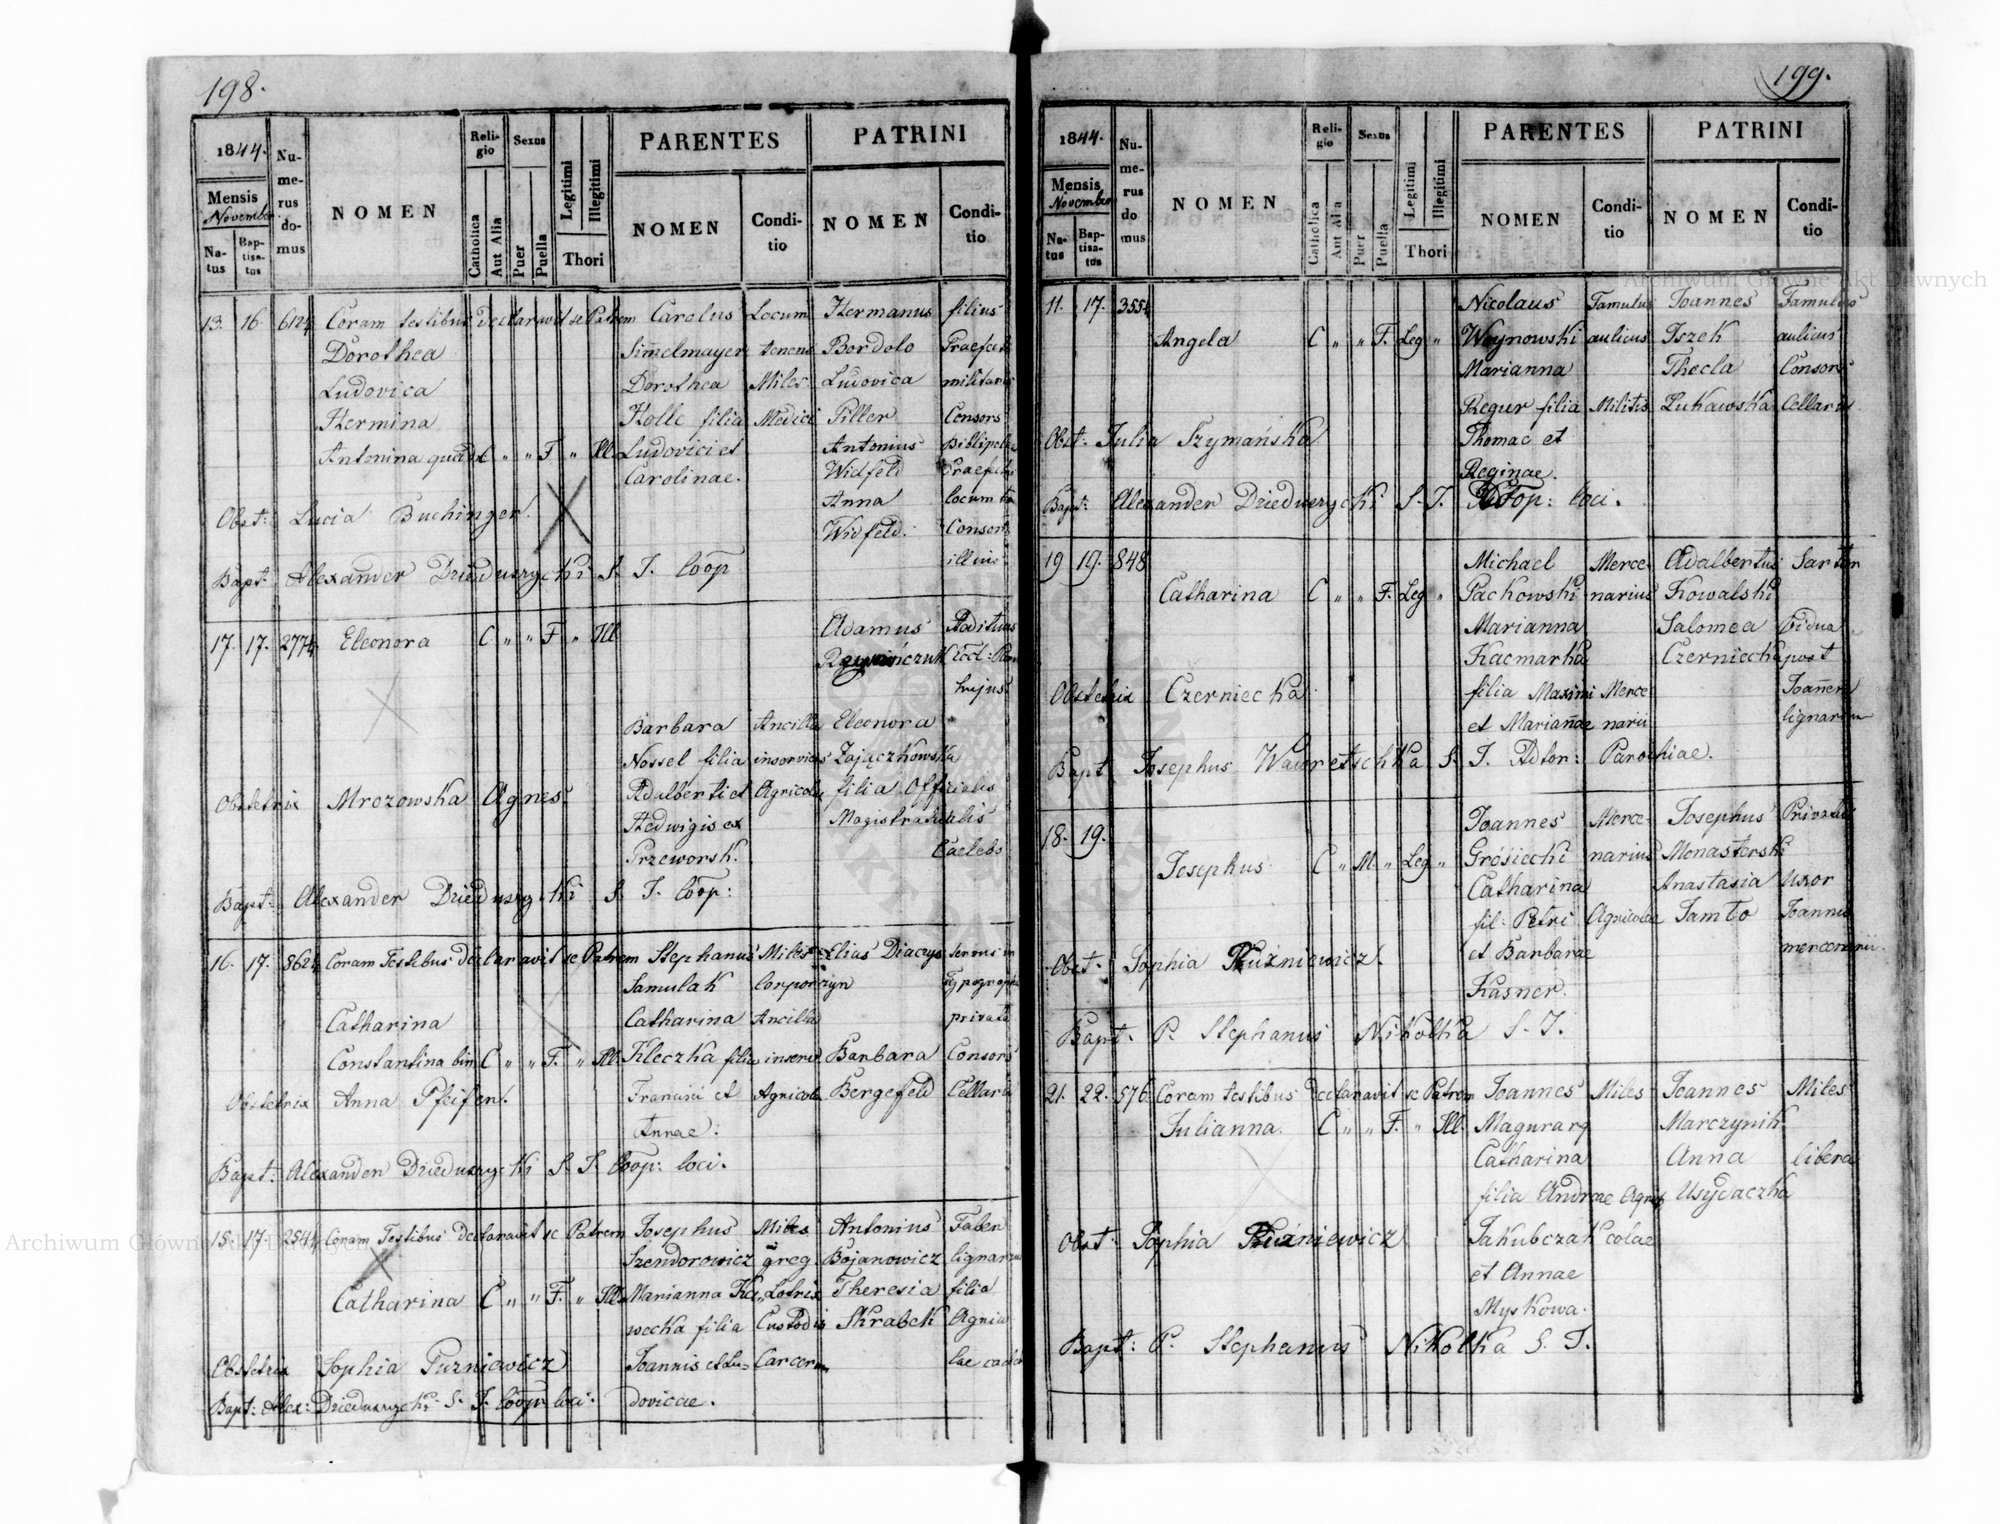 198.
1844.
Mensis
November
Natus
Baptisatus
Numerus domus
NOMEN
Religio
Catholica
Aut Alia
Sexus
Puer
Puella
Legitimi
Illegitimi
Thori
PARENTES
NOMEN
Conditio
PATRINI
NOMEN
Conditio
13. 16. Coram testibus declaravit se Patrem Carolus Locum Hermanus filius
Dorothea Simelmayer tenens Bordolo Praefecti
Ludovica Dorothea Miles Ludovica militaris
Hermina Holle filia Medici Piller Consors
Antonina " " F " Ill. Ludovici et Antonius
Carolinae. Widfeld
Anna locum
Obst: Lucia Buchinger. Widfeld. Consors
illius
Bapt: Alexander Dzieduszycki S. J. Coop
17. 17. 277 Eleonora C " " F " Ill Adamus
hujus
Barbara Ancilla Eleonora
Nossel filia inserviens Zajączkowska
Obstetrix Mrozowska Agnes. Adalberti et Agricola filia Officialis
Hedwigis ex Magistratualis
Przeworsk. Caelebs
Bapt: Alexander Dzieduszycki S. J. Coop:
16. 17. Coram Testibus declaravit se Patrem Stephanus Miles Elias Diaczyszyn
Samulak
Catharina Catharina Ancilla privata
Constantina bin C " " F. " Ill. Kleczka filia inserv. Barbara Consors
Obstetrix Anna Pfeifer. Francisci et Agricola Bergefeld Cellarii
Annae.
Bapt: Alexander Dzieduszycki S. J. Coop: loci.
15. 17. 254 Coram Testibus declaravit se Patrem Josephus Miles Antonius Faber
Szendorowicz greg. Bojanowicz lignarius
Catharina C " " F. " Ill. Marianna Ka- Lotrix Theresia filia
wecka filia Custodis Skrabek Agrico
Obstetrix Sophia Puzniewicz Joannis et Lu- Carcerum lae
Bapt: Alex: Dzieduszycki S. J. Coop loci. dovicae.
199.
1844.
Mensis
November
Natus
Baptisatus
Numerus domus
NOMEN
Religio
Catholica
Aut Alia
Sexus
Puer
Puella
Legitimi
Illegitimi
Thori
PARENTES
NOMEN
Conditio
PATRINI
NOMEN
Conditio
11. 17. 355 Nicolaus Famulus Joannes Famulus
Angela C " " F. Leg " Woynowski aulicus Iszek aulicus
Marianna Thecla Consors
Regur filia Militis Lukawska Cellarii
Obst: Julia Szymańska Thomae et
Reginae.
Bapt: Alexander Dzieduszycki S. J. Coop: loci.
19 19. 848 Michael Merce- Adalbertus Sartor
Catharina C " " F. Leg " Packowski narius Kowalski
Marianna Salomea Vidua
Kacmarka Czerniecka post
Obstetrix Czerniecka filia Maximi Merce- Joannem
et Mariannae narii lignarium
Bapt Josephus Wawretschka S. J. Adtor: Parochiae.
18. 19. Joannes Merce- Josephus Privatus
Josephus C " M. " Leg " Grósiecki narius Monasterski
Catharina Anastasia Uxor
fil: Petri Agricolae Jamto Joannis
Obst. Sophia Puzniewicz. et Barbarae mercenarii.
Kasner.
Bapt. P. Stephanus Nikolka S. J.
21. 22. 576 Coram testibus declaravit se Patrem Joannes Miles Joannes Miles
Julianna. C " " F. " Ill. Magurarq Marczynik
Catharina Anna libera
filia Andreae Agri- Usydaczka
Obst: Sophia Puzniewicz Jakubczak colae
et Annae
Myskowa.
Bapt: P. Stephanus Nikolka S. J.
Archiwum Główne Akt Dawnych
Archiwum Główne Akt Dawnych